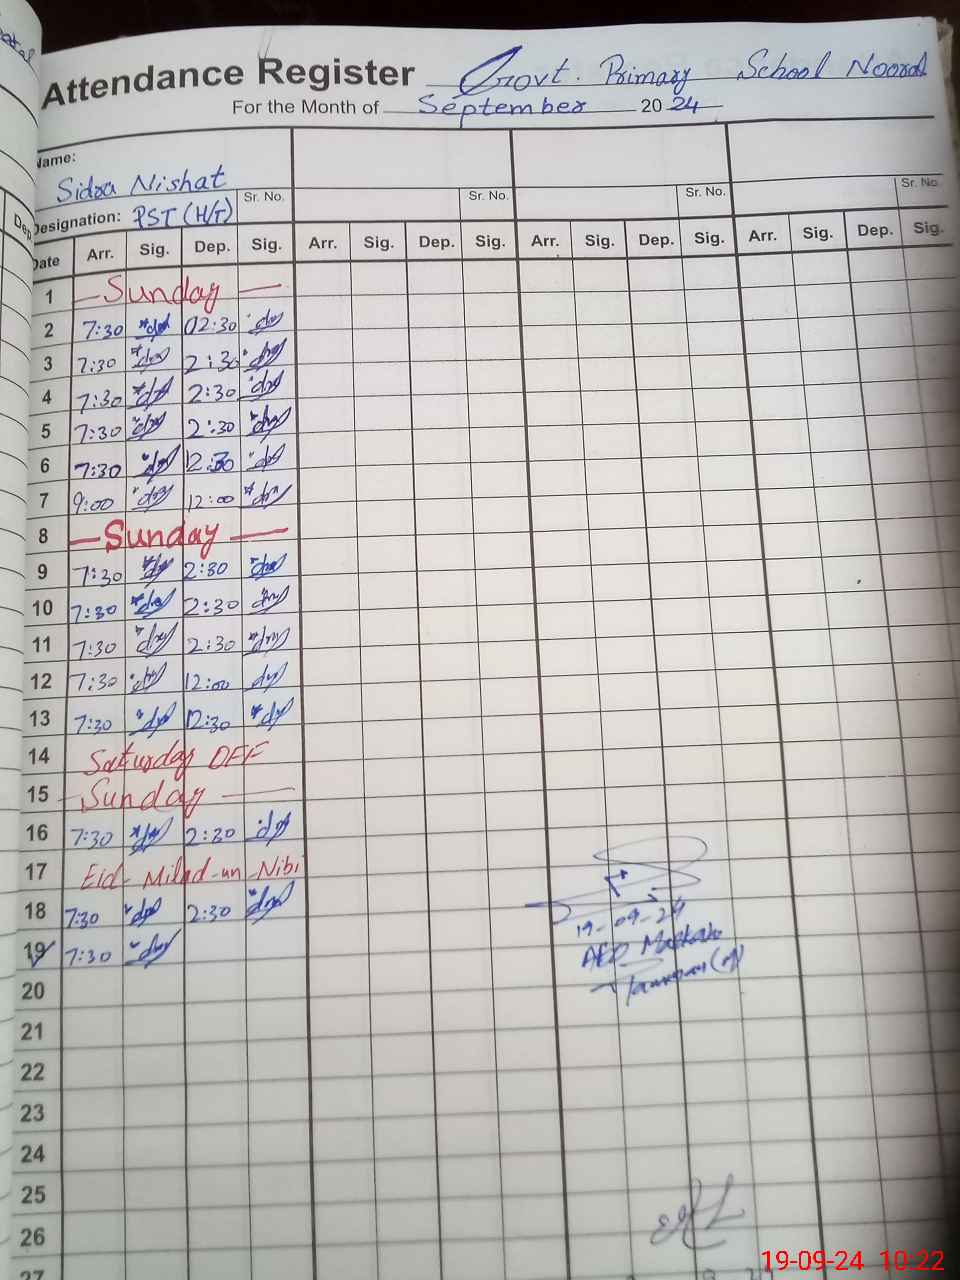 Attendance Register Govt. Primary School Nooral
For the Month of September 2024
Name:
Sidra Nishat
Sr. No. Sr. No. Sr. No. Sr. No.
Designation: PST (H/T)
Date Arr. Sig. Dep. Sig. Arr. Sig. Dep. Sig. Arr. Sig. Dep. Sig. Arr. Sig. Dep. Sig.
1 — Sunday —
2 7:30 02:30
3 7:30 2:30
4 7:30 2:30
5 7:30 2:30
6 7:30 12:30
7 9:00 12:00
8 — Sunday —
9 7:30 2:30
10 7:30 2:30
11 7:30 2:30
12 7:30 12:00
13 7:30 12:30
14 Saturday OFF
15 — Sunday —
16 7:30 2:30
17 Eid-Milad-un-Nibi
18 7:30 2:30
19 7:30
20
21
22
23
24
25
26
27
19-09-24
AEO
19-09-24 10:22